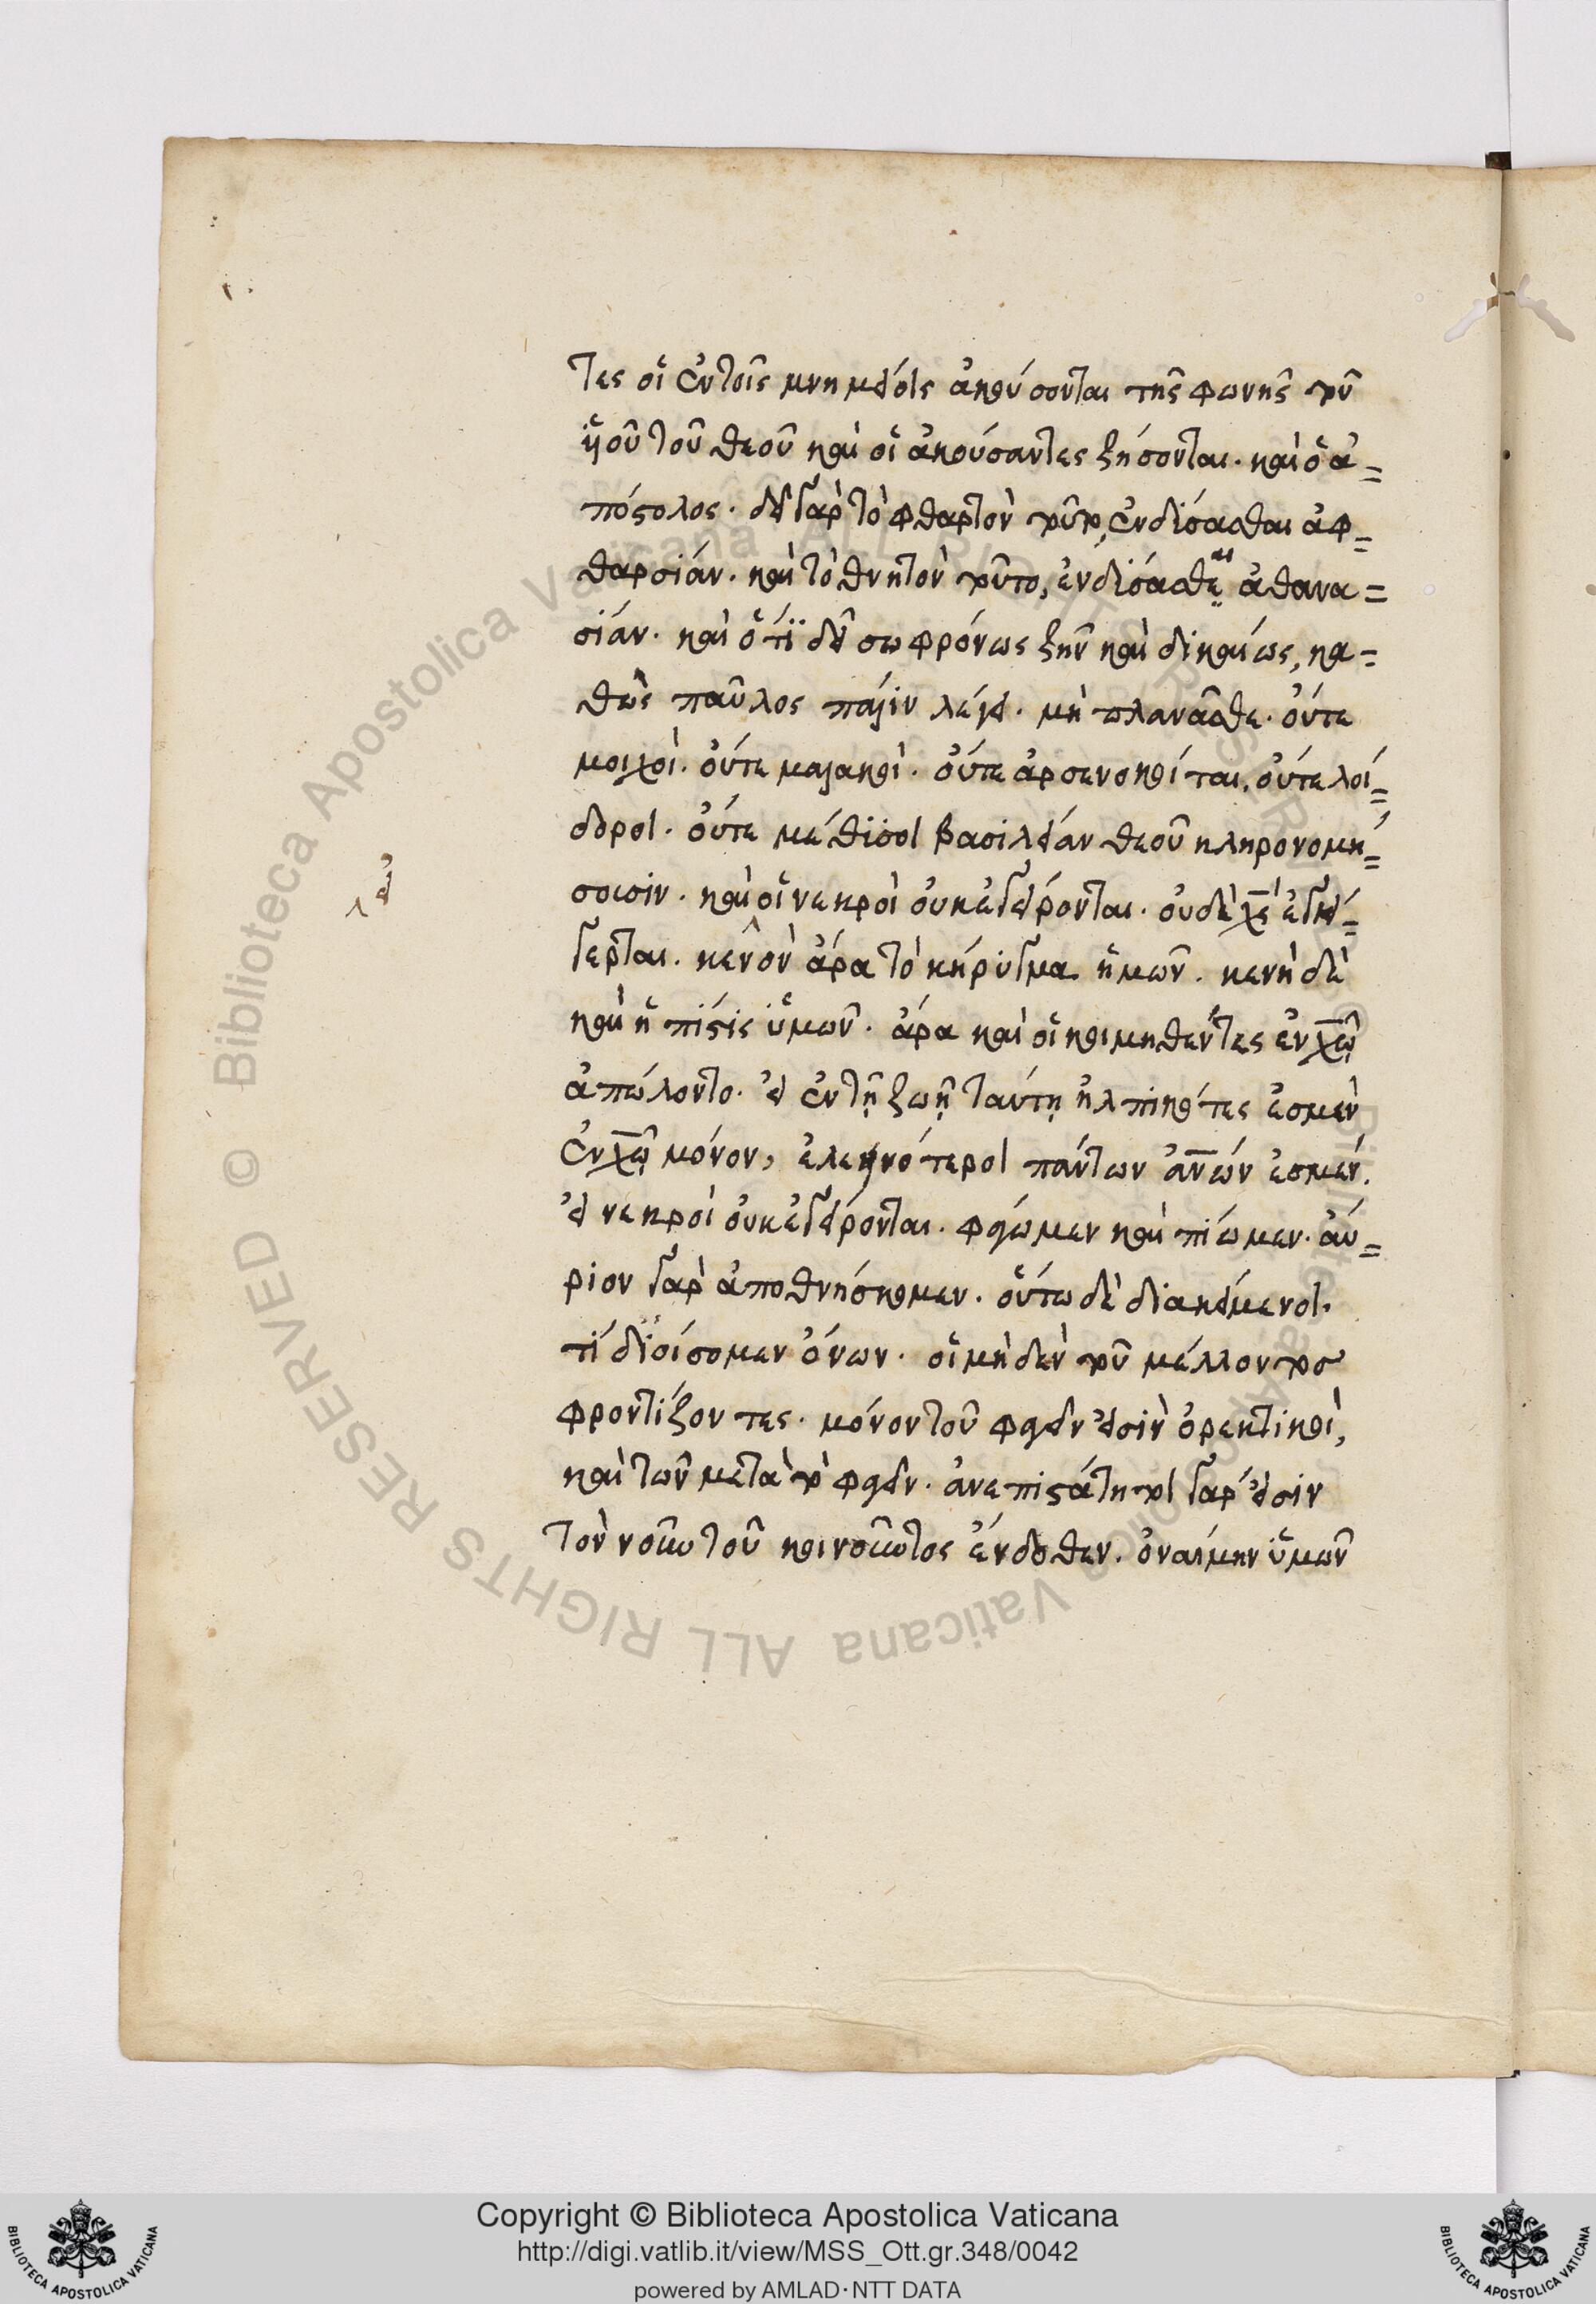 τες οἱ ἐν τοῖς μνημείοις ἀκούσονται τῆς φωνῆς τοῦ
ὑιοῦ τοῦ θεοῦ καὶ οἱ ἀκούσαντες ζήσονται. καὶ ὁ ἀ=
πόστολος. δεῖ γὰρ τὸ φθαρτὸν τοῦτο, ἐνδύσασθαι ἀφ=
θαρσίαν. καὶ τὸ θνητὸν τοῦτο, ἐνδύσασθαι ἀθανα=
σίαν. καὶ ὅτι δεῖ σωφρόνως ζῆν καὶ δικαίως, κα=
θὼς παῦλος πάλιν λέγει. μὴ πλανᾶσθε. οὔτε
μοιχοὶ. οὔτε μαλακοὶ. οὔτε ἀρσενοκοίται, οὔτε λοί=
δοροι. οὔτε μέθυσοι βασιλείαν θεοῦ κληρονομή=
σουσιν. καὶ οἱ νεκροὶ οὐκ ἐγείρονται. οὐδὲ χς ἐγή=
γερται. κενὸν ἄρα τὸ κήρυγμα ἡμῶν. κενὴ δὲ
καὶ ἡ πίστις ὑμῶν. ἄρα καὶ οἱ κοιμηθέντες ἐν χῶ
ἀπώλοντο. εἰ ἐν τῇ ζωῇ ταύτῃ ἠλπικότες ἐσμὲν
ἐν χῶ μόνον, ἐλεεινότεροι πάντων ἀνων ἐσμέν.
εἰ νεκροὶ οὐκ ἐγείρονται. φάγωμεν καὶ πίωμεν. αὔ=
ριον γὰρ ἀποθνήσκομεν. οὕτω δὲ διακείμενοι.
τί διοίσομεν ὄνων. οἱ μὴδὲν τοῦ μέλλοντος
φροντίζοντες. μόνον τοῦ φαγεῖν εἰσὶν ὀρεκτικοὶ,
καὶ τῶν μετὰ τὸ φαγεῖν. ἀνεπιστάτητοι γάρ εἰσιν
τὸν νοῦν τοῦ κοινοῦντος ἔνδοθεν. ὀναίμην ὑμῶν
Copyright © Biblioteca Apostolica Vaticana
http://digi.vatlib.it/view/MSS_Ott.gr.348/0042
powered by AMLAD·NTT DATA